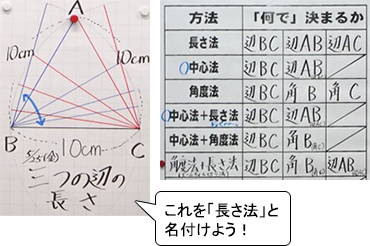 A
10cm
10cm
B
C
10cm
5/25(金)
三つの辺の
長さ
方法 「何で」決まるか
長さ法 辺BC 辺AB 辺AC
中心法 辺BC 辺AB
角度法 辺BC 角B 角C
中心法+長さ法 辺BC 辺AB
中心法+角度法 辺BC 角B
角度法+長さ法 辺BC 角B 辺AB
これを「長さ法」と
名付けよう!